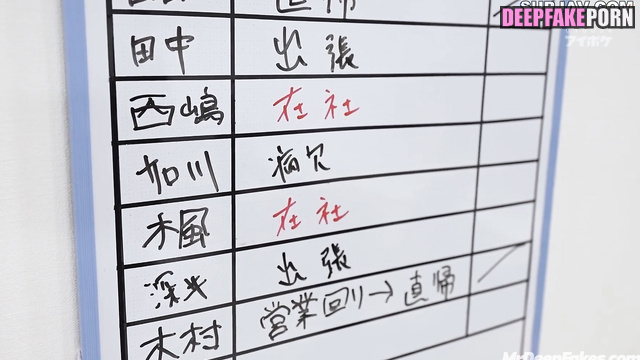 直帰
SUBJAV.COM
DEEPFAKEPORN
アイポケ
田中 出張
西嶋 在社
加川 病欠
楓 在社
出張
木村 営業回り→直帰
MrDeepFakes.com